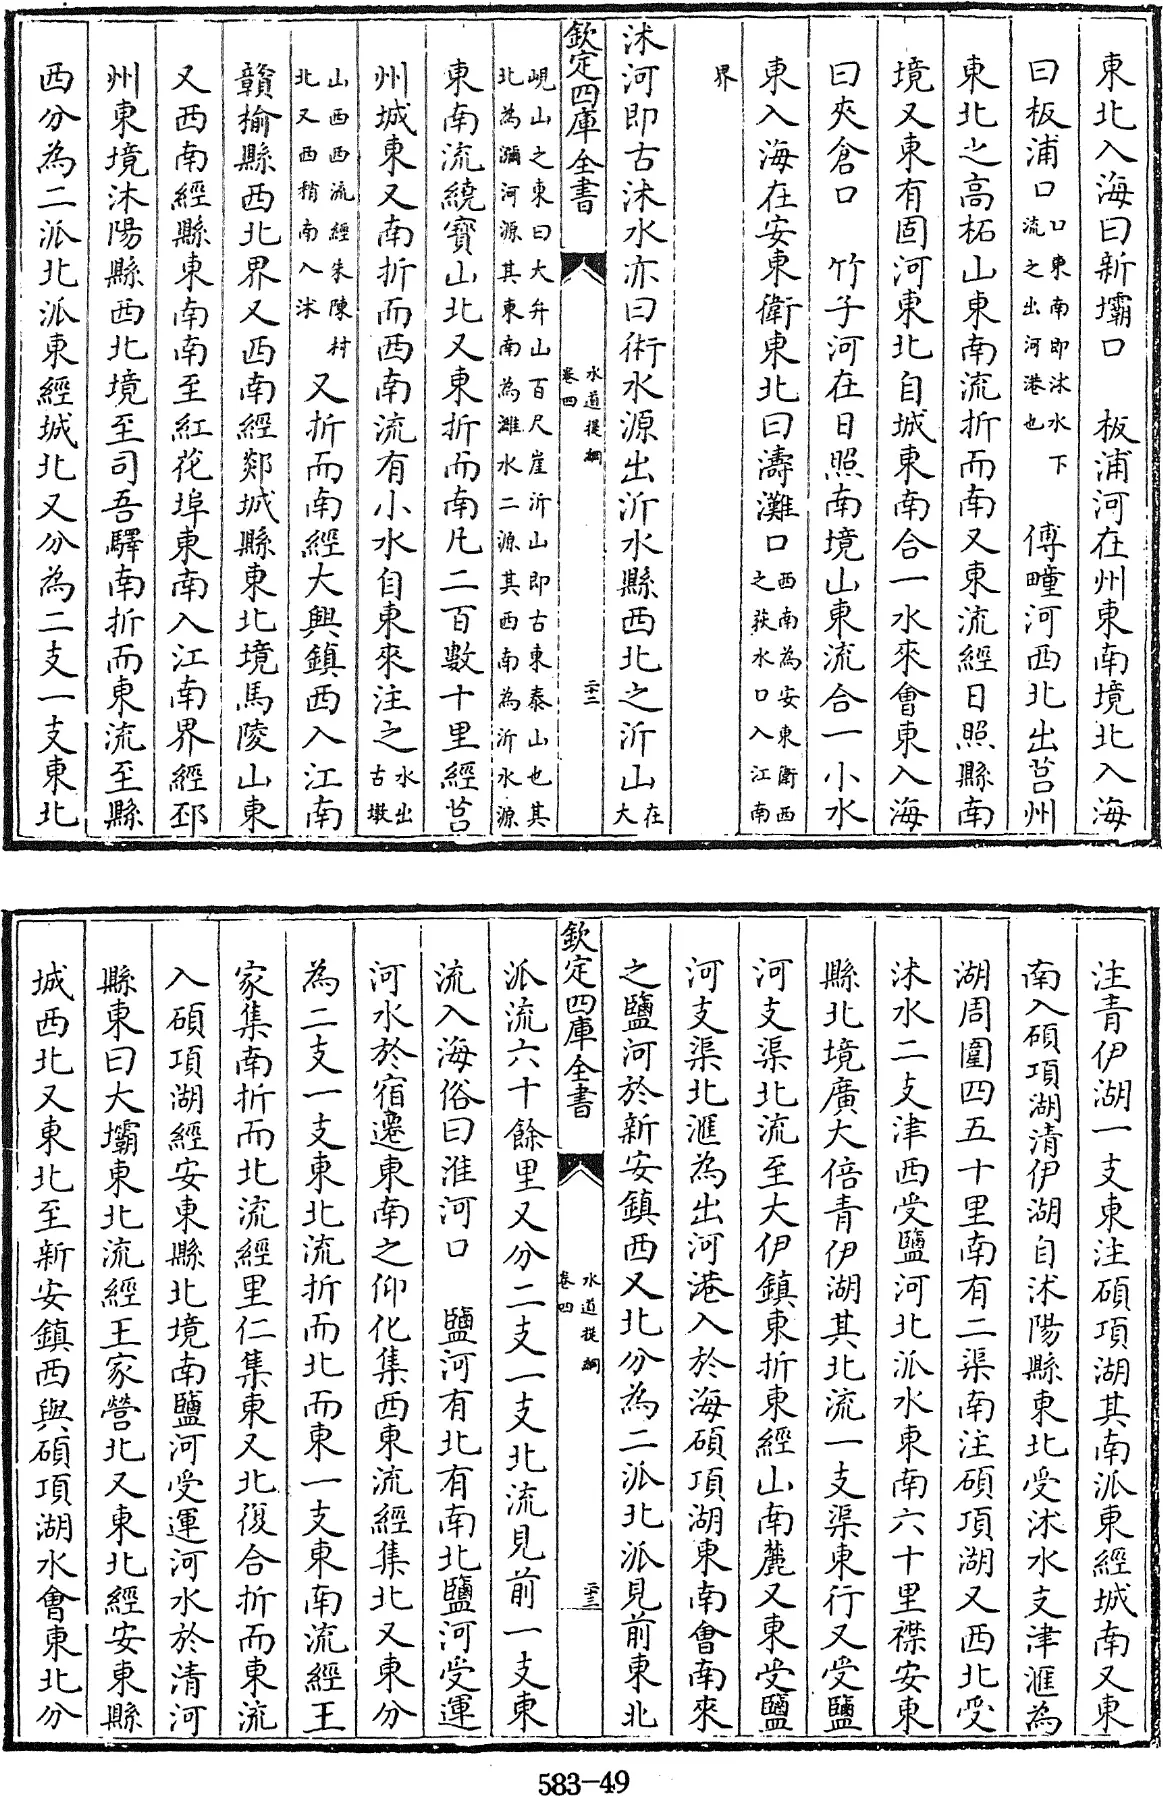 東北入海曰新壩口　板浦河在州東南境北入海
曰板浦口口東南即沭水下流之出河港也　傅疃河西北出莒州
東北之高柘山東南流折而南又東流經日照縣南
境又東有固河東北自城東南合一水來會東入海
曰夾倉口　竹子河在日照南境山東流合一小水
東入海在安東衛東北曰濤灘口西南為安東衛西之荻水口入江南
界
沭河即古沭水亦曰術水源出沂水縣西北之沂山在大
欽定四庫全書　水道提綱卷四　二十二
峴山之東曰大弁山百尺崖沂山即古東泰山也其北為瀰河源其東南為濰水二源其西南為沂水源
東南流繞寳山北又東折而南凡二百數十里經莒
州城東又南折而西南流有小水自東來注之水出古墩
山西西流經朱陳村北又西稍南入沭　又折而南經大興鎮西入江南
贛榆縣西北界又西南經郯城縣東北境馬陵山東
又西南經縣東南南至紅花埠東南入江南界經邳
州東境沭陽縣西北境至司吾驛南折而東流至縣
西分為二派北派東經城北又分為二支一支東北
注青伊湖一支東注碩項湖其南派東經城南又東
南入碩項湖清伊湖自沭陽縣東北受沭水支津滙為
湖周圍四五十里南有二渠南注碩項湖又西北受
沭水二支津西受鹽河北派水東南六十里襟安東
縣北境廣大倍青伊湖其北流一支渠東行又受鹽
河支渠北流至大伊鎮東折東經山南麓又東受鹽
河支渠北滙為出河港入於海碩項湖東南會南來
之鹽河於新安鎮西又北分為二派北派見前東北
欽定四庫全書　水道提綱卷四　二十三
派流六十餘里又分二支一支北流見前一支東
流入海俗曰淮河口　鹽河有北有南北鹽河受運
河水於宿遷東南之仰化集西東流經集北又東分
為二支一支東北流折而北而東一支東南流經王
家集南折而北流經里仁集東又北復合折而東流
入碩項湖經安東縣北境南鹽河受運河水於清河
縣東曰大壩東北流經王家營北又東北經安東縣
城西北又東北至新安鎮西與碩項湖水會東北分
583-49